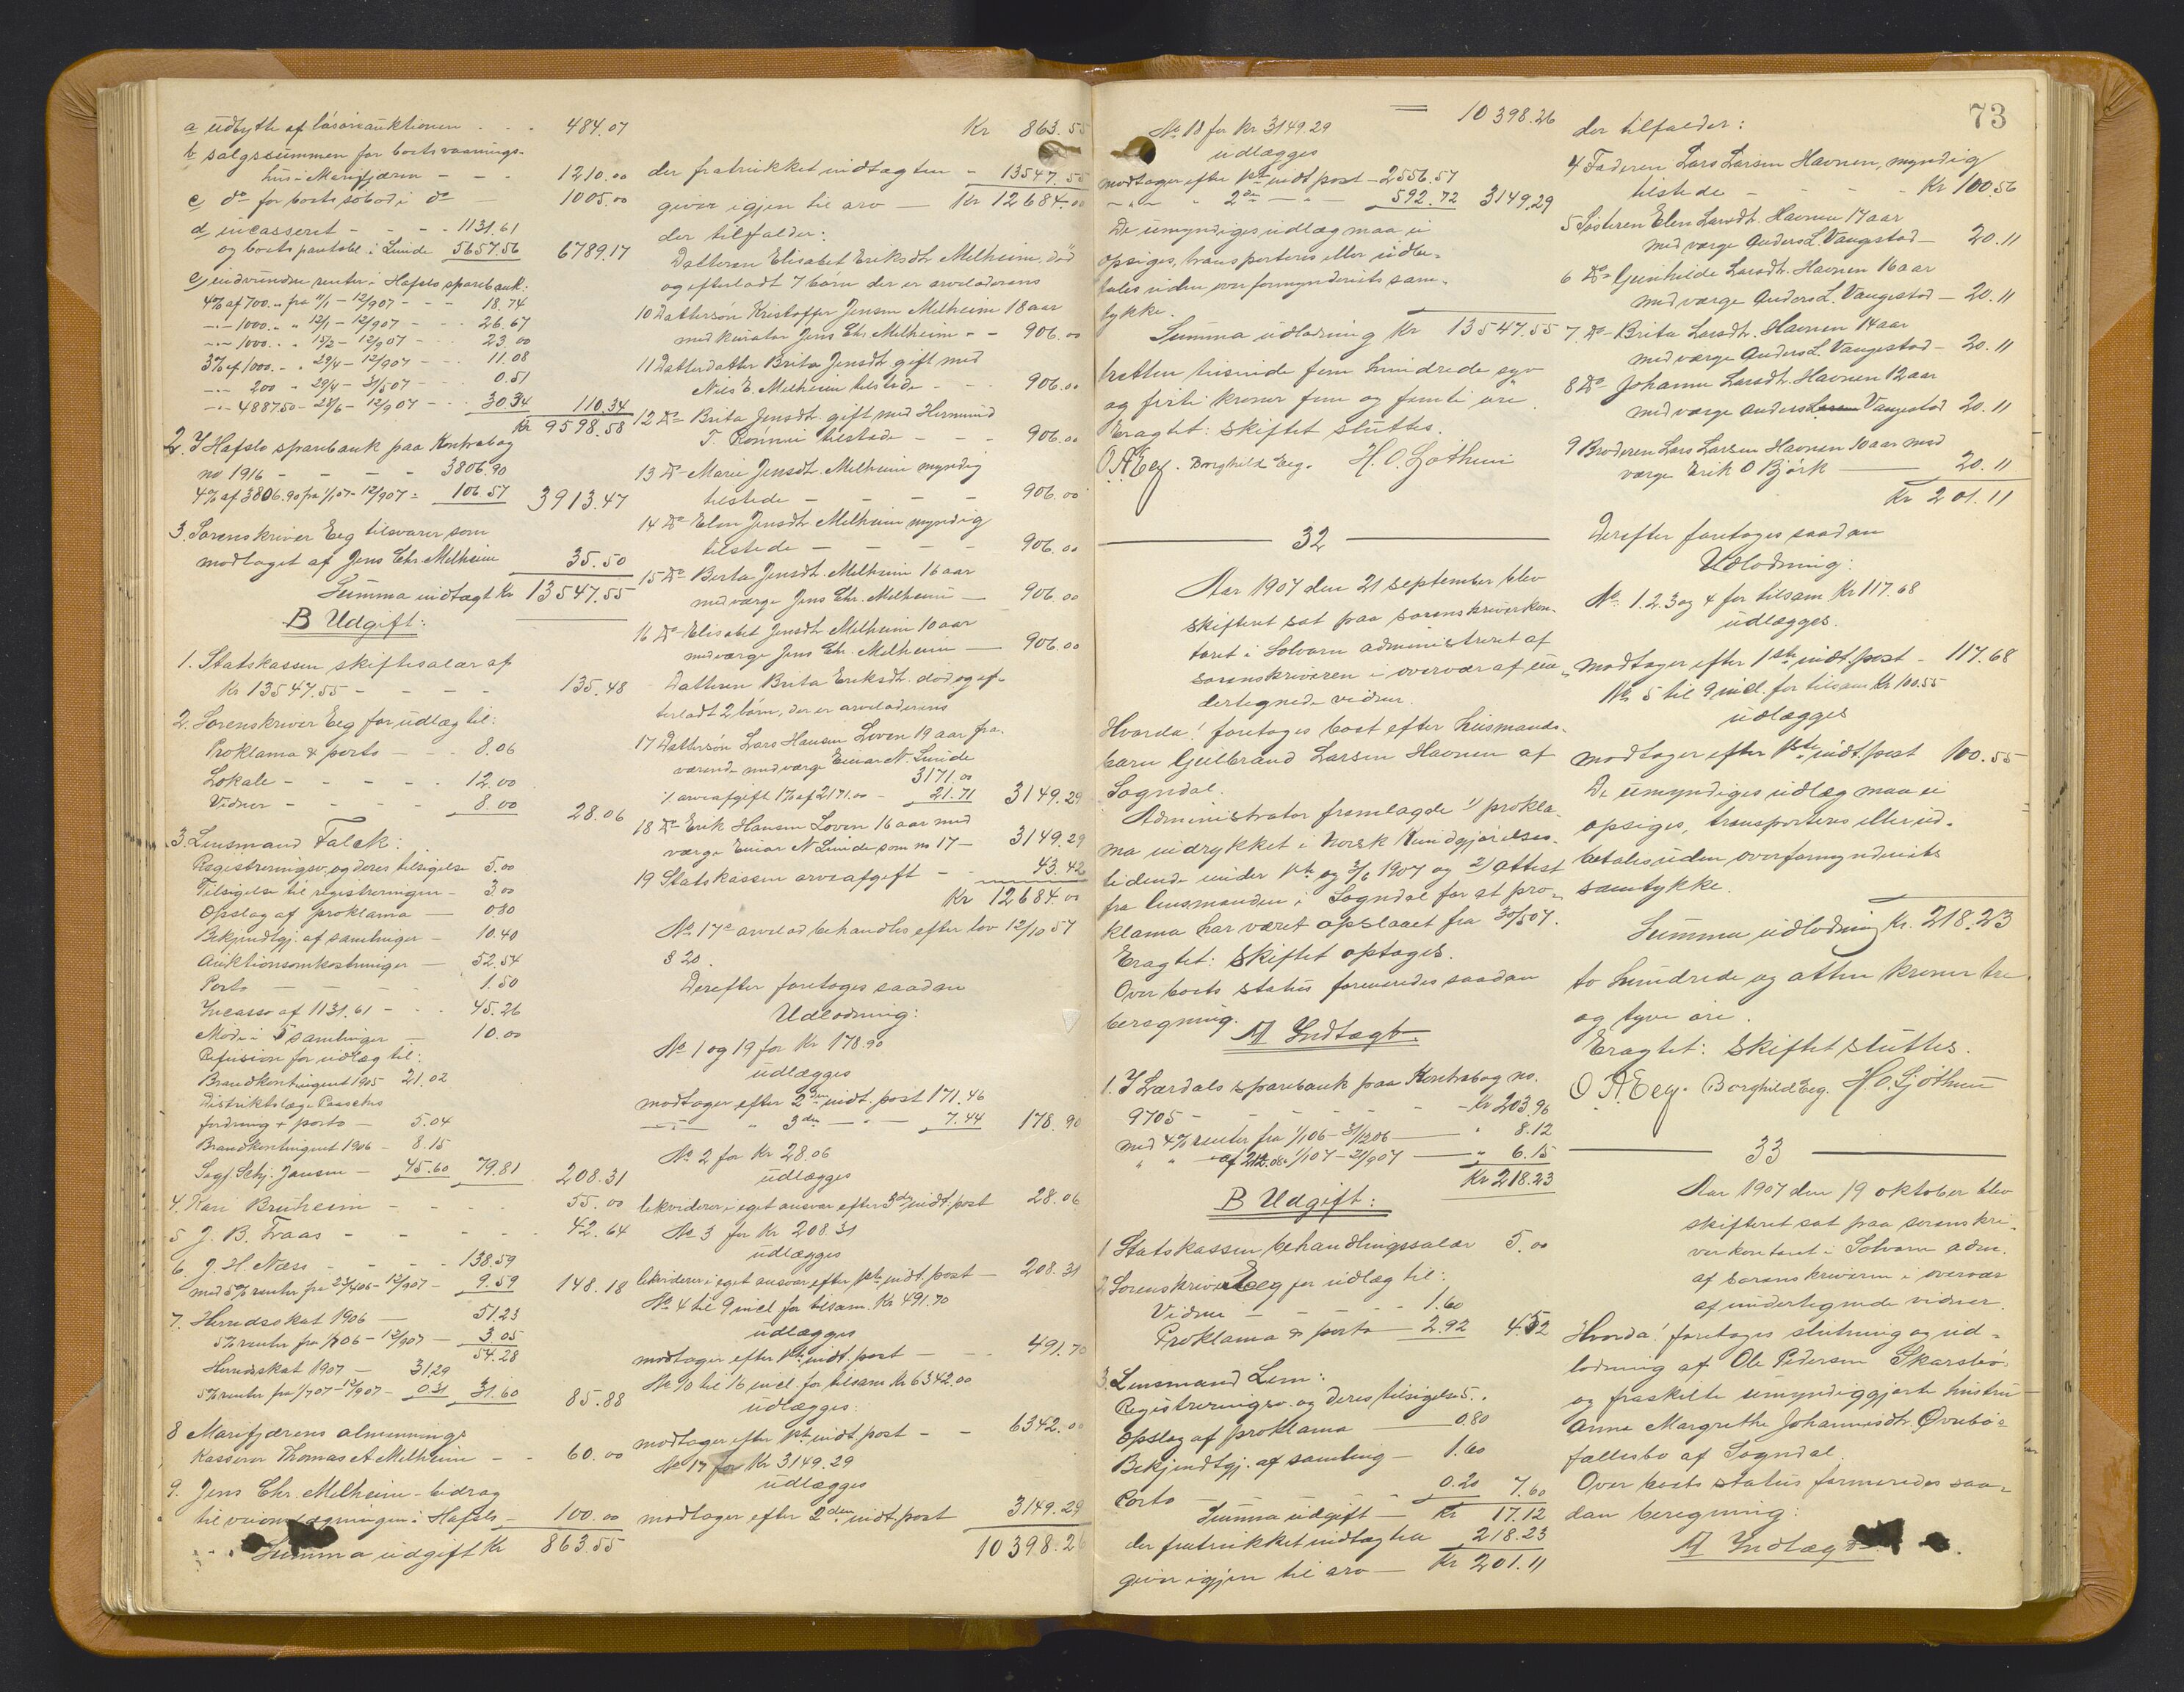 a udbytte af løsøreauktionen - - - 484.07
b salgssummen for boets vaanings-
hus i Marifjæren - - - 1210.00
c do for boets søbod i do - 1005.00
d, incasseret - - - - 1131.61
og boets pantobl. i Lunde 5657.56 6789.17
e, indvundne renter i Hafslo sparebank:
4% af 700.- fra 11/1 - 12/9 07 - - - 18.74
-"- 1000.- " 12/1 - 12/9 07 - - - 26.67
-"- 1000.- " 15/2 - 12/9 07 - - - 23.00
3% af 1000.- " 29/4 - 12/9 07 - - - 11.08
-"- 200 " 29/4 - 31/5 07 - - 0.51
-"- 4887.50 - 28/6 - 12/9 07 - - 30.34 110.34
Kr 9598.58
2. I Hafslo sparebank paa Kontrabog
no 1916 - - - - 3806.90
4% af 3806.90 fra 1/1 07 - 12/9 07 = 106.57 3913.47
3. Sorenskriver Eeg tilsvarer som
modtaget af Jens Chr. Melheim 35.50
Summa indtægt Kr 13547.55
B Udgift:
1. Statskassen skiftesalær af
Kr 13547.55 - - - - 135.48
2. Sorenskriver Eeg for udlæg til:
Proklama & porto - - - 8.06
Lokale - - - - - 12.00
Vidner - - - - 8.00 28.06
3. Lensmand Falck:
Registreringsv. og deres tilsigelse 5.00
Tilsigelse til registreringen - 3.00
Opslag af proklama - 0.80
Bekjendtgj. af samlinger - 10.40
Auktionsomkostninger - 52.54
Porto - - - - 1.50
Incasso af 1131.61 - - - 45.26
Møde i 5 samlinger - 10.00
Refusion for udlæg til:
Brandkontingent 1905 21.02
Distriktslæge Paasches
fordring & porto - 5.04
Brandkontingent 1906 - 8.15
Sagf. Schj. Jansen - 45.60 79.81 208.31
4. Kari Bruheim - - - - 55.00
5 J. B. Fraas - - - - - 42.64
6. J. H. Næss - - - - 138.59
med 5% renter fra 23/4 06 - 12/9 07 - 9.59 148.18
7. Herredsskat 1906 - 51.23
5% renter fra 1/7 06 - 12/9 07 - 3.05
54.28
Herredsskat 1907 - 31.29
5% renter fra 1/7 07 - 12/9 07 - 0.31 31.60 85.88
8 Marifjærens almennings
kasserer Thomas A Melheim - - 60.00
9. Jens Chr. Melheim - bidrag
til veiomlægningen i Hafslo - 100.00
Summa udgift Kr 863.55
Kr 863.55
der fratrukket indtægten - 13547.55
giver igjen til arv - Kr 12684.00
der tilfalder:
Datteren Elisabet Eriksdtr. Melheim, død
og efterladt 7 børn der er arveladerens
10 Dattersøn Kristoffer Jensen Melheim 18 aar
med kurator Jens Chr. Melheim - - 906.00
11 Datterdatter Brita Jensdtr. gift med
Nils E. Melheim tilstede - - - 906.00
12 Do Brita Jensdtr. gift med Hermund
T. Rønnei tilstede - - - 906.00
13 Do Marie Jensdtr. Melheim myndig
tilstede - - - - 906.00
14 Do Elen Jensdtr. Melheim myndig
tilstede - - - - 906.00
15 Do Berta Jensdtr. Melheim 16 aar
med værge Jens Chr. Melheim - 906.00
16 Do Elisabet Jensdtr. Melheim 10 aar
med værge Jens Chr. Melheim - 906.00
Datteren Brita Eriksdtr. død og ef-
terladt 2 børn, der er arveladerens
17 Dattersøn Lars Hansen Loven 19 aar fra-
værende med værge Einar N. Lunde
3171.00
÷ arveafgift 1% af 2171.00 - 21.71 3149.29
18 Do Erik Hansen Loven 16 aar med
værge Einar N Lunde som no 17 - 3149.29
19 Statskassen arveafgift - - 43.42
Kr 12684.00
No 17s arvelod behandles efter lov 12/10 57
§ 20.
Derefter foretoges saadan
Udlodning:
No 1 og 19 for Kr 178.90
udlægges
modtager efter 2den indt. post 171.46
-"- " 3die -"- 7.44 178.90
No 2 for Kr 28.06
udlægges
likviderer i eget ansvar efter 3die indt. post 28.06
No 3 for Kr 208.31
udlægges
likviderer i eget ansvar efter 1ste indt. post - 208.31
No 4 til 9 incl. for tilsam. Kr 491.70
udlægges
modtager efter 1ste indt. post - - 491.70
No 10 til 16 incl. for tilsam Kr 6342.00
udlægges:
modtager efter 1ste indt. post - - 6342.00
No 17 for Kr 3149.29
udlægges
modtager efter 2den indt. post 3149.29
10398.26
= 10398.26
No 18 for Kr 3149.29
udlægges
modtager efter 1ste indt post - 2556.57
-"- " 2den -"- 592.72 3149.29
De umyndiges udlæg maa ei
opsiges, transporteres eller udbe-
tales uden overformynderiets sam-
tykke.
Summa udlodning Kr 13547.55
tretten tusinde fem hundrede syv
og førti kroner fem og femti øre.
Eragtet: Skiftet sluttes.
O. A. Eeg. Borghild Eeg. H. O. Gjøthun
32
Aar 1907 den 21 September blev
skifteret sat paa sorenskriverkon-
toret i Solvorn administreret af
sorenskriveren i overvær af un-
dertegnede vidner.
Hvorda! foretoges boet efter husmands-
barn Gulbrand Larsen Havnen af
Sogndal.
Administrator fremlagde 1) prokla-
ma indrykket i Norsk Kundgjørelses-
tidende under 1ste og 3/6 1907 og 2) attest
fra lensmanden i Sogndal for at pro-
klama har været opslaaet fra 30/5 07.
Eragtet: Skiftet optages.
Over boets status formeredes saadan
beregning.
A Indtægt.
1. I Lærdals sparebank paa Kontrabog no.
9705 - - - - - Kr 203.96
med 4% renter fra 1/1 06 - 31/12 06 - " 8.12
" " af 212.08 - 1/1 07 - 21/9 07 - " 6.15
Kr 218.23
B Udgift:
1 Statskassen behandlingssalær 5.00
2 Sorenskriver Eeg for udlæg til:
Vidner - - - - 1.60
Proklama & porto - 2.92 4.52
3. Lensmand Lem:
Registreringsv. og deres tilsigelse 5..
Opslag af proklama - 0.80
Bekjendtgj. af samling - 1.60
Porto - - - 0.20 7.60
Summa udgift - Kr 17.12
der fratrukket indtægten 218.23
giver igjen til arv - Kr 201.11
73
der tilfalder:
4 Faderen Lars Larsen Havnen, myndig
tilstede - - - - Kr 100.56
5 Søsteren Elen Larsdtr. Havnen 17 aar
med værge Anders L. Vangestad - 20.11
6 Do Gunhilde Larsdtr. Havnen 16 aar
med værge Anders L. Vangestad - 20.11
7. Do Brita Larsdtr. Havnen 14 aar
med værge Anders L. Vangestad - 20.11
8 Do Johanne Larsdtr. Havnen 12 aar
med værge Anders Larsen Vangestad 20.11
9 Broderen Lars Larsen Havnen 10 aar med
værge Erik O Bjørk - 20.11
Kr 201.11
Derefter foretoges saadan
Udlodning:
No. 1. 2. 3 og 4 for tilsam. Kr 117.68
udlægges.
modtager efter 1ste indt. post - 117.68
No 5 til 9 incl. for tilsam Kr 100.55
udlægges
modtager efter 1ste indt. post 100.55
De umyndiges udlæg maa ei
opsiges, transporteres eller ud-
betales uden overformynderiets
samtykke.
Summa udlodning Kr. 218.23
to hundrede og atten kroner tre
og tyve øre.
Eragtet: Skiftet sluttes.
O. A. Eeg. Borghild Eeg. H. O. Gjøthun
33
Aar 1907 den 19 oktober blev
skifteret sat paa sorenskri-
verkontoret i Solvorn adm.
af sorenskriveren i overvær
af undertegnede vidner.
Hvorda! foretoges slutning og ud-
lodning af Ole Pedersen Skarsbø
og fraskilte umyndiggjorte hustru
Anna Margrethe Johannesdtr. Øvrebø's
fællesbo af Sogndal.
Over boets status formeredes saa-
dan beregning:
A Indtægt.